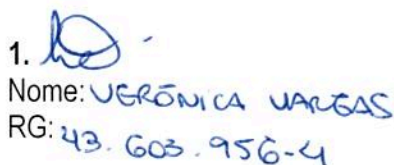 1.
Nome: VERÔNICA VARGAS
RG: 43.603.956-4